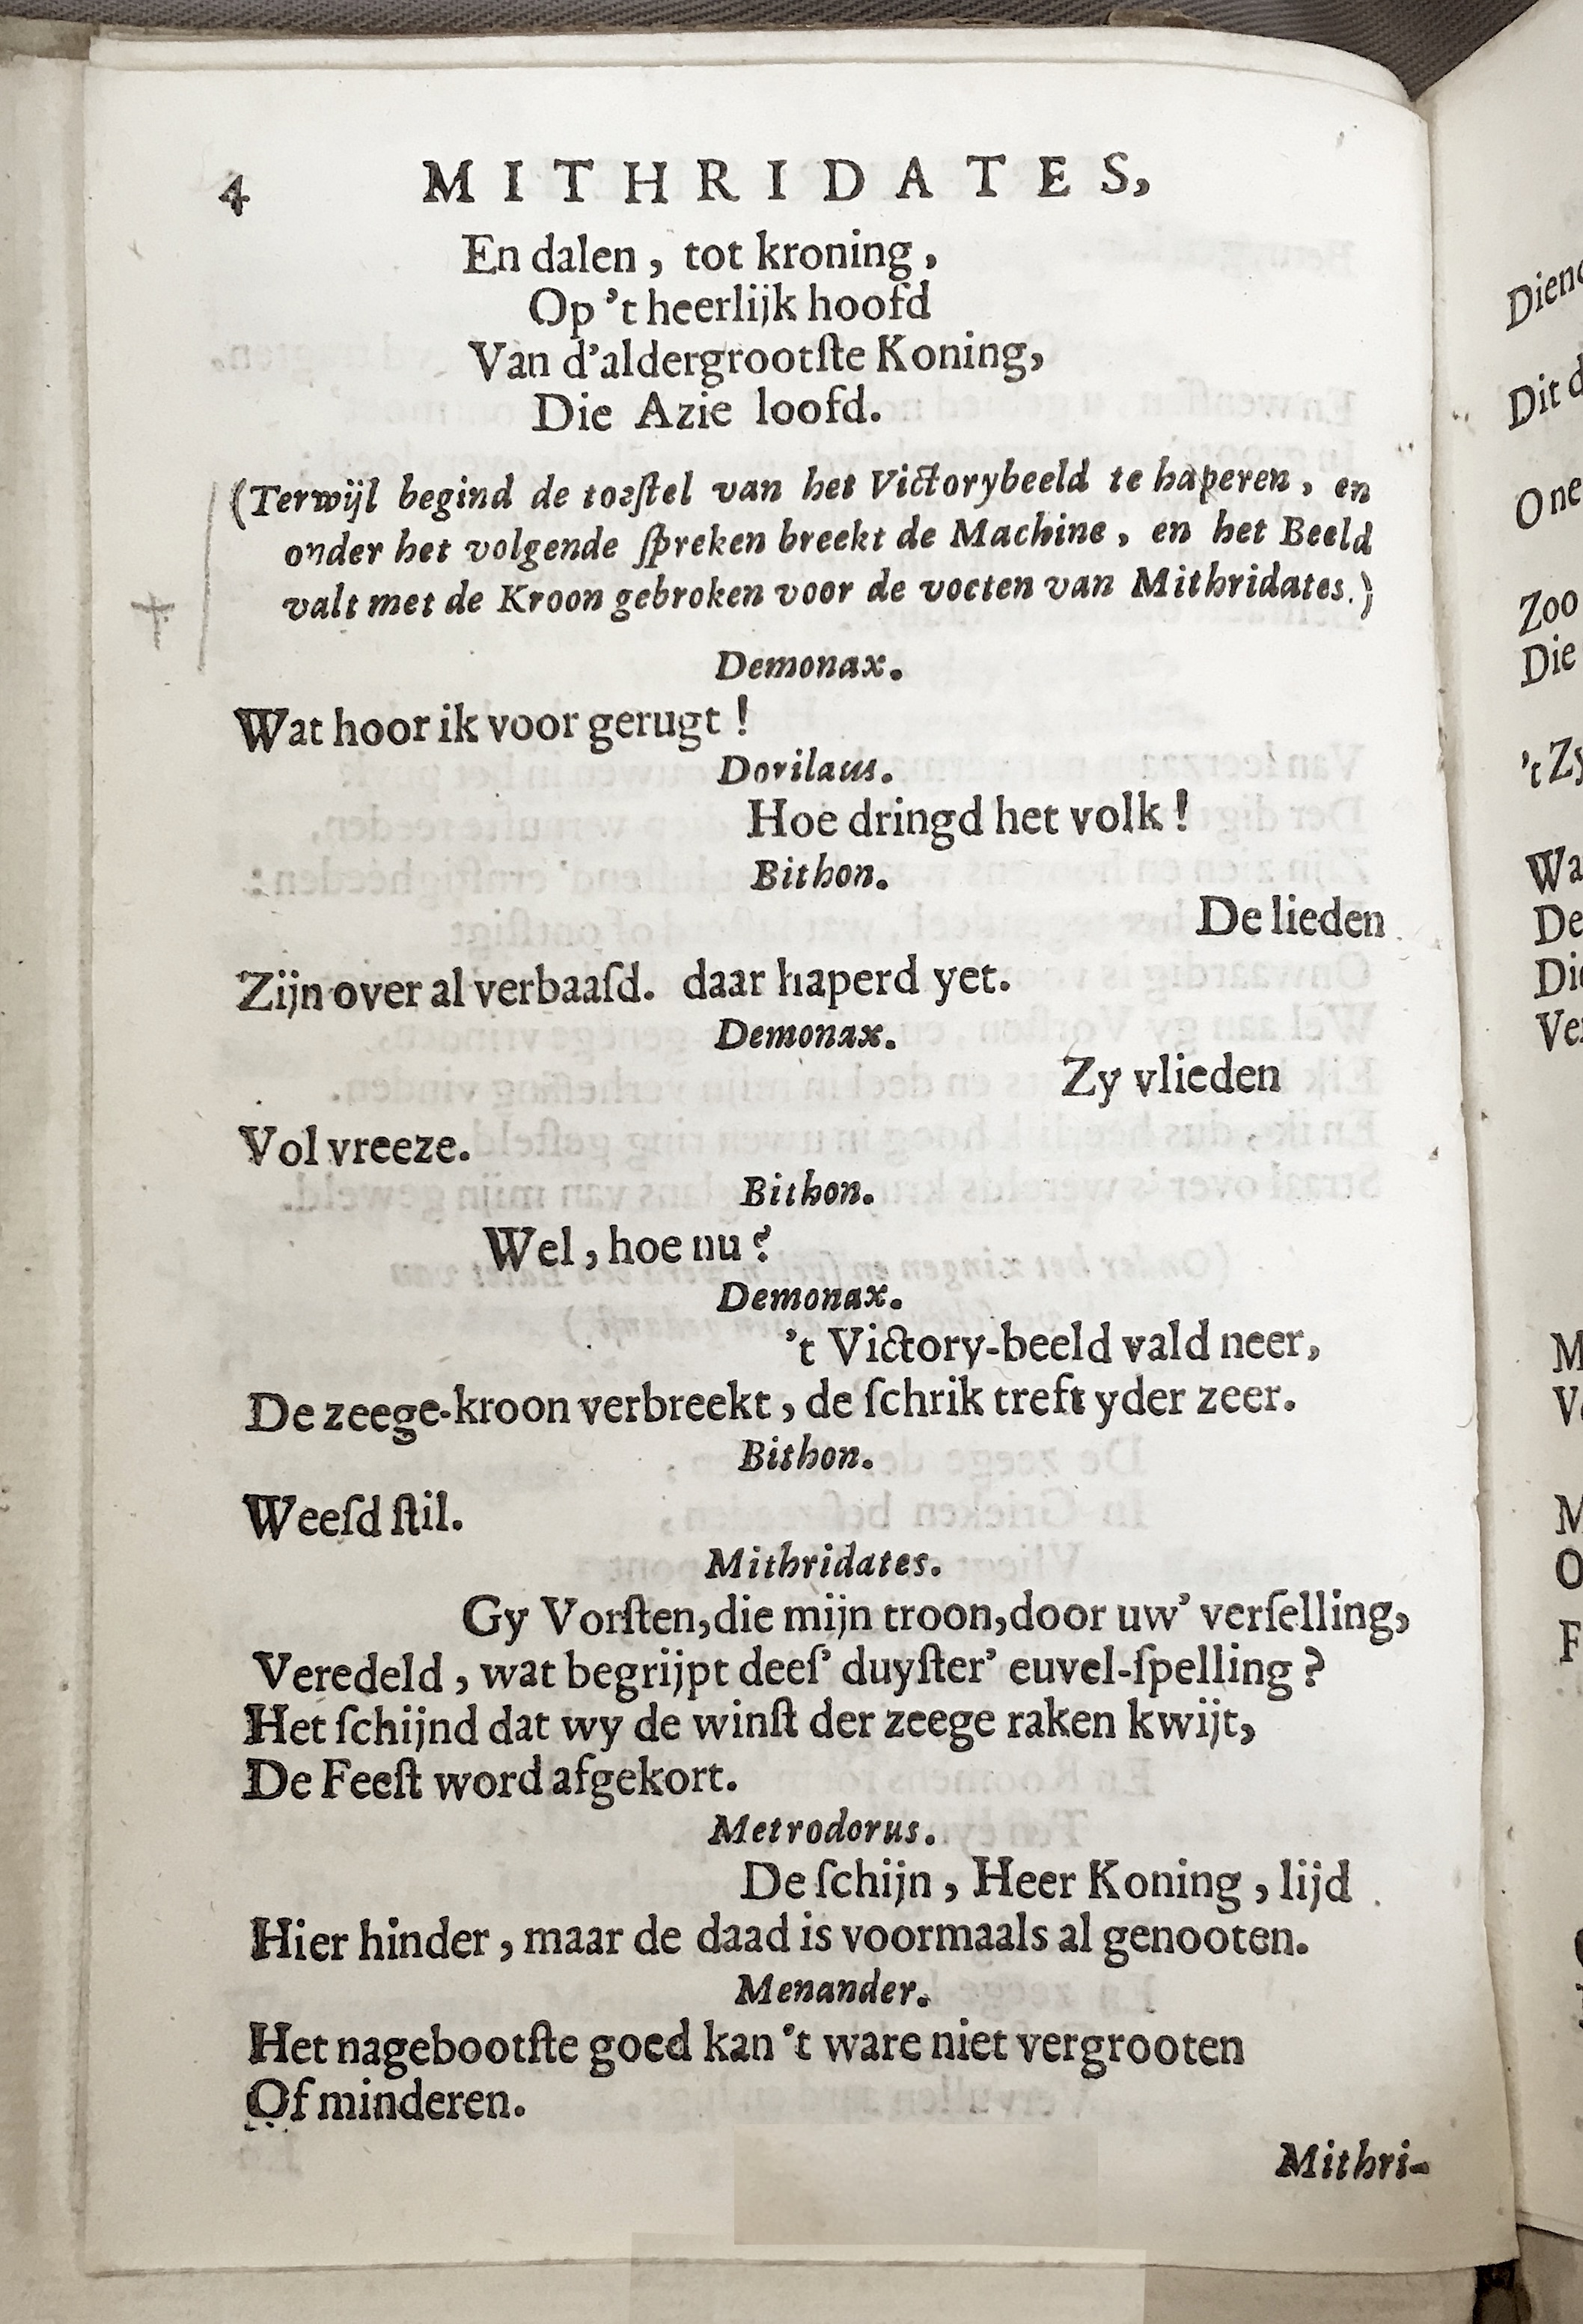 4 MITHRIDATES,
En dalen, tot kroning,
Op 't heerlijk hoofd
Van d'aldergrootſte Koning,
Die Azie loofd.
(Terwijl begind de toeſtel van het Victorybeeld te haperen, en
onder het volgende ſpreken breekt de Machine, en het Beeld
valt met de Kroon gebroken voor de voeten van Mithridates.)
Demonax.
Wat hoor ik voor gerugt!
Dorilaus.
Hoe dringd het volk!
Bithon.
De lieden
Zijn over al verbaaſd. daar haperd yet.
Demonax.
Zy vlieden
Vol vreeze.
Bithon.
Wel, hoe nu?
Demonax.
't Victory-beeld vald neer,
De zeege-kroon verbreekt, de ſchrik treft yder zeer.
Bithon.
Weeſd ſtil.
Mithridates.
Gy Vorſten, die mijn troon, door uw' verſelling,
Veredeld, wat begrijpt deeſ' duyſter' euvel-ſpelling?
Het ſchijnd dat wy de winſt der zeege raken kwijt,
De Feeſt word afgekort.
Metrodorus.
De ſchijn, Heer Koning, lijd
Hier hinder, maar de daad is voormaals al genooten.
Menander.
Het nagebootſte goed kan 't ware niet vergrooten
Of minderen.
Mithri-
Dit d
O ne
Zoo
Die
't Zy
Wa
De